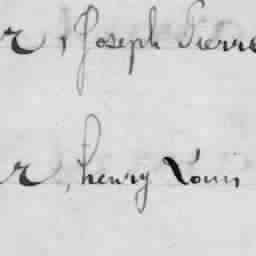 r, Joseph Pierre
r, henry Louis